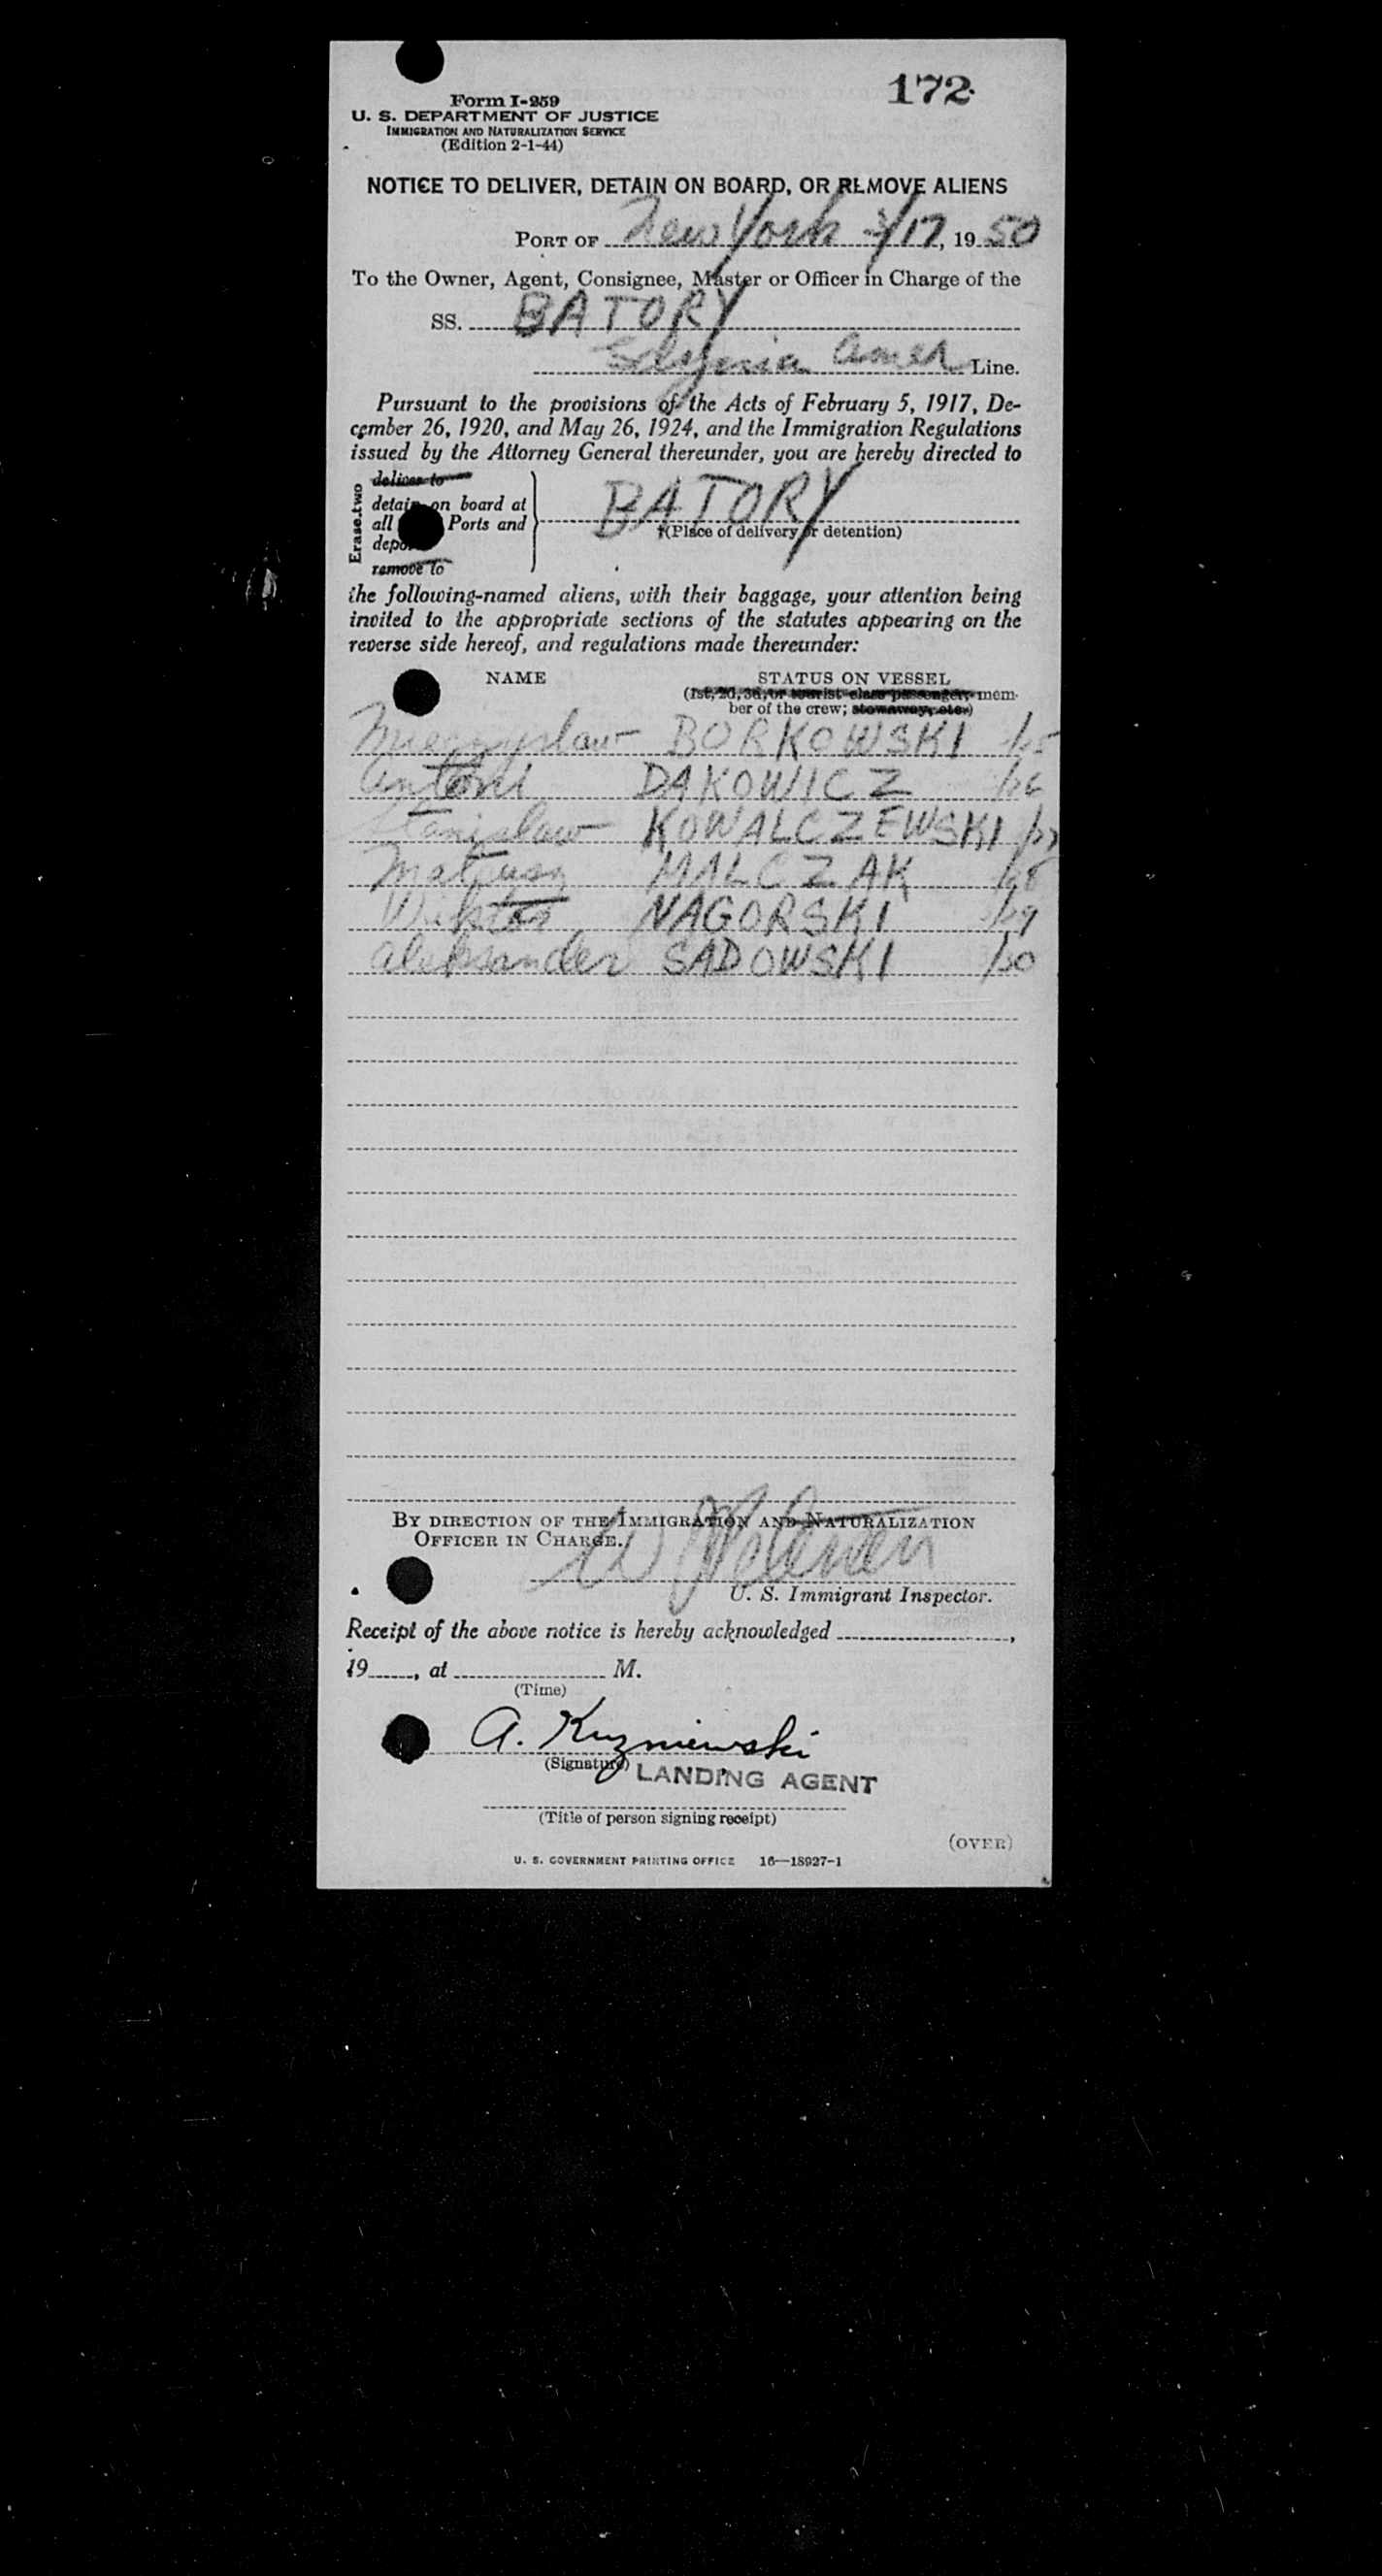 172
Form I-259
U. S. DEPARTMENT OF JUSTICE
IMMIGRATION AND NATURALIZATION SERVICE
(Edition 2-1-44)
NOTICE TO DELIVER, DETAIN ON BOARD, OR REMOVE ALIENS
PORT OF New York /17, 19 50
To the Owner, Agent, Consignee, Master or Officer in Charge of the
SS. BATORY
Gdynia Amer Line.
Pursuant to the provisions of the Acts of February 5, 1917, De-
cember 26, 1920, and May 26, 1924, and the Immigration Regulations
issued by the Attorney General thereunder, you are hereby directed to
Erase two
deliver to
detain on board at
all Ports and
remove to
BATORY
†(Place of delivery or detention)
the following-named aliens, with their baggage, your attention being
invited to the appropriate sections of the statutes appearing on the
reverse side hereof, and regulations made thereunder:
NAME STATUS ON VESSEL
(1st, 2d, 3d, or tourist class passenger, mem-
ber of the crew; stowaway, etc.)
Mieczyslaw BORKOWSKI
Antoni DAKOWICZ
Stanislaw KOWALCZEWSKI
Mateusz MALCZAK
Wiktor NAGORSKI
Aleksander SADOWSKI
BY DIRECTION OF THE IMMIGRATION AND NATURALIZATION
OFFICER IN CHARGE.
U. S. Immigrant Inspector.
Receipt of the above notice is hereby acknowledged ,
19 , at M.
(Time)
A. Kuzniewski
(Signature) LANDING AGENT
(Title of person signing receipt)
(OVER)
U. S. GOVERNMENT PRINTING OFFICE 16—18927-1